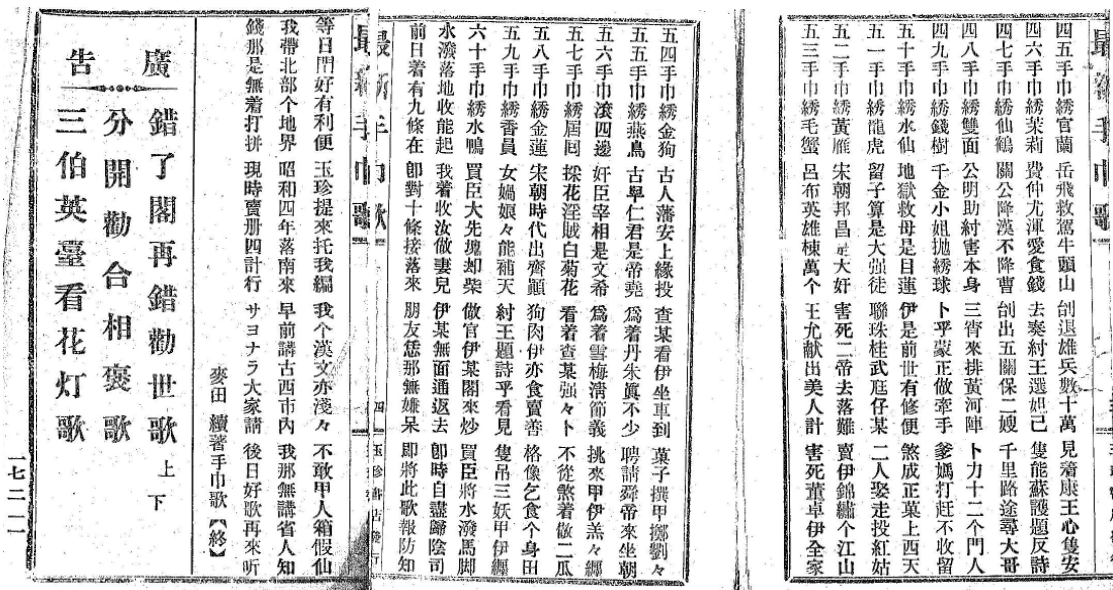 最新手巾歌
四五手巾綉官蘭 岳飛救駕牛頭山 刣退雄兵數十萬 見着康王心隻安
四六手巾綉茉莉 費仲尤渾愛食錢 去奏紂王選妲己 隻能蘇護題反詩
四七手巾綉仙鶴 關公降漢不降曹 刣出五關保二嫂 千里路途尋大哥
四八手巾綉雙面 公明助紂害本身 三霄來排黃河陣 卜力十二個門人
四九手巾綉錢樹 千金小姐拋綉球 卜乎蒙正做牽手 爹媽打赶不收留
五十手巾綉水仙 地獄救母是目蓮 伊是前世有修便 煞成正菓上西天
五一手巾綉龍虎 留子算是大强徒 聯珠桂武尫仔某 二人娶走投紅姑
五二手巾綉黃雁 宋朝邦昌大奸 害死二帝去落難 賣伊錦繡個江山
五三手巾綉毛蟹 呂布英雄棟萬个 王允献出美人計 害死董卓伊全家
五四手巾綉金狗 古人潘安上緣投 查某看伊坐車到 菓子撰甲擲劉々
五五手巾綉燕鳥 古早仁君是帝堯 爲着丹朱眞不少 聘請舜帝來坐朝
五六手巾滾四邊 奸臣宰相是文希 爲着雪梅淸節義 挑來甲伊羔々纏
五七手巾綉囘 採花淫賊白菊花 看着查某强々卜 不從煞着做二瓜
五八手巾綉金蓮 宋朝時代出齊顚 狗肉伊亦食賣善 格像乞食个身田
五九手巾綉香員 女媧娘々能補天 紂王題詩乎看見 隻吊三妖甲伊纒
六十手巾綉水鴨 買臣大先塊却柴 做官伊某閣來炒 買臣將水潑馬脚
水潑落地收能起 我着收汝做妻兒 伊某無面通返去 卽時自盡歸陰司
前日着有九條在 卽對十條接落來 朋友恁那無嫌呆 卽將此歌報防知
最新手巾歌 四 玉珍書店發行
最新手巾歌
等日門好有利便 玉珍提來托我編 我个漢文亦淺々 不敢甲人箱假仙
我帶北部个地界 昭和四年落南來 早前講古西市內 我那無講省人知
錢那是無着打拼 現時賣册四計行 サヨナラ大家請 後日好歌再來听
麥田 續著手巾歌【終】
廣告
錯了閣再錯勸世歌 上下
分開勸合相褒歌
三伯英臺看花灯歌
一七二一一